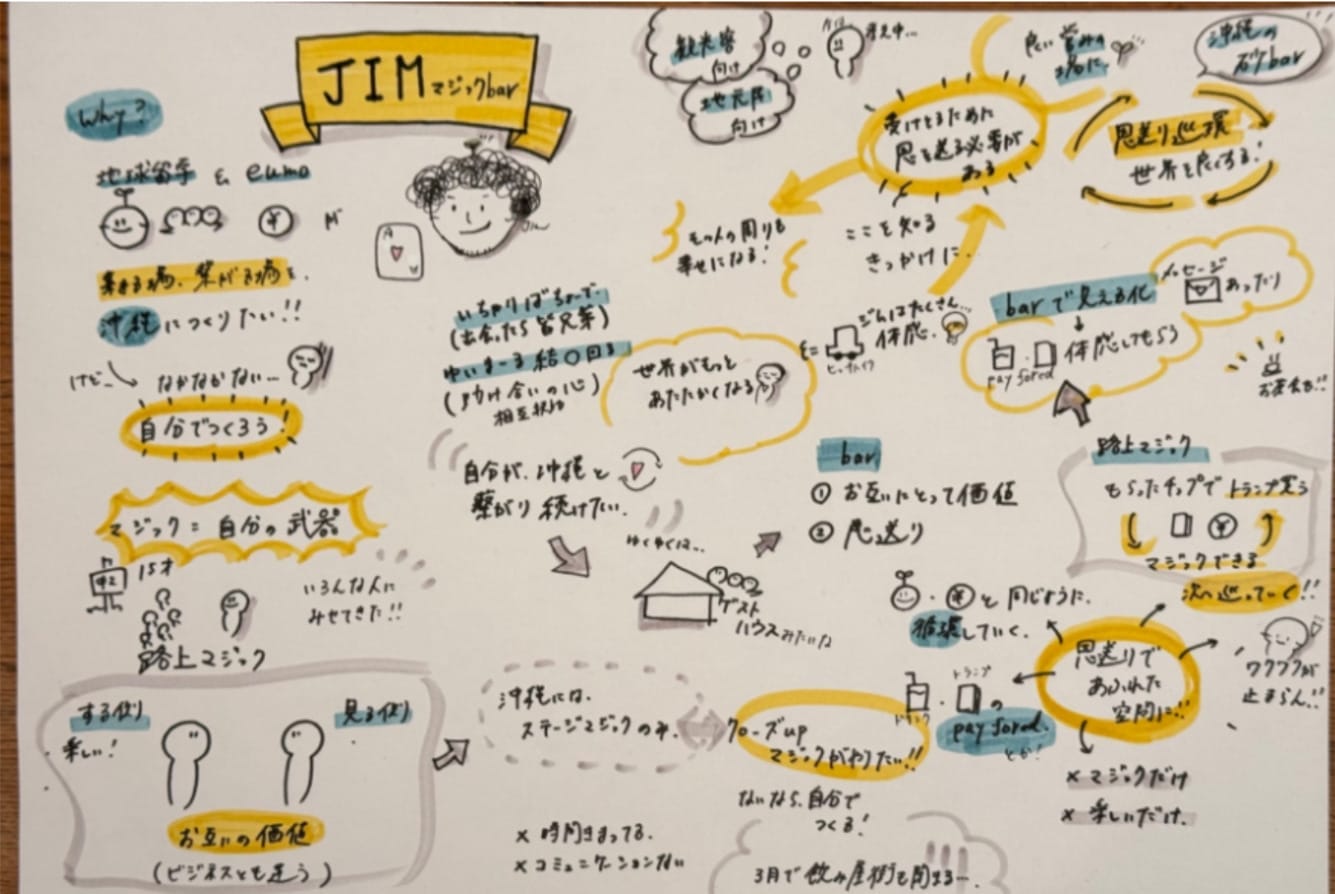 JIM マジックbar
Why?
地球留学 & eumo
¥
が
集まる場、繋がる場を、
沖縄につくりたい!!
けど…
なかなかない…
自分でつくろう!
マジック=自分の武器
中2
15才
いろんな人に
みせてきた!!
路上マジック
する側
見る側
楽しい!
お互いの価値
(ビジネスとも違う)
A
Jim
いちゃりばちょーで
(出会ったら皆兄弟)
ゆいまーる 結〇回る
(助け合いの心)
相互扶助
自分が、沖縄と
繋がり続けたい.
ゆくゆくは…
ゲスト
ハウスみたいな
沖縄には、
ステージマジックのみ.
× 時間きまってる.
× コミュニケーションない
クローズup
マジックがやりたい!!
ないなら、自分で
つくる!
3月で飲み屋街も閉まるー.
観光客
向け
地元民
向け
考え中…
良い営みの
場に
沖縄の
bar
受けとるために
恩を送る必要が
ある
恩送り巡環
世界を良くする!
その人の周りも
幸せになる!
ここを知る
きっかけに.
世界がもっと
あたたかくなる
じんはたくさん…
体感.
ヒッチハイク
barで見える化
メッセージ
あったり
体感してもらう
pay fored
お花も!!
bar
① お互いにとって価値
② 恩送り
路上マジック
もらったチップでトランプ買う
¥
マジックできる
次へ巡っていく!!
・¥と同じように.
循環していく.
恩送りで
あふれた
空間に!!
ワクワクが
止まらん!!
トランプ
ドリンク
・の
pay fored.
とか!
× マジックだけ
× 楽しいだけ.